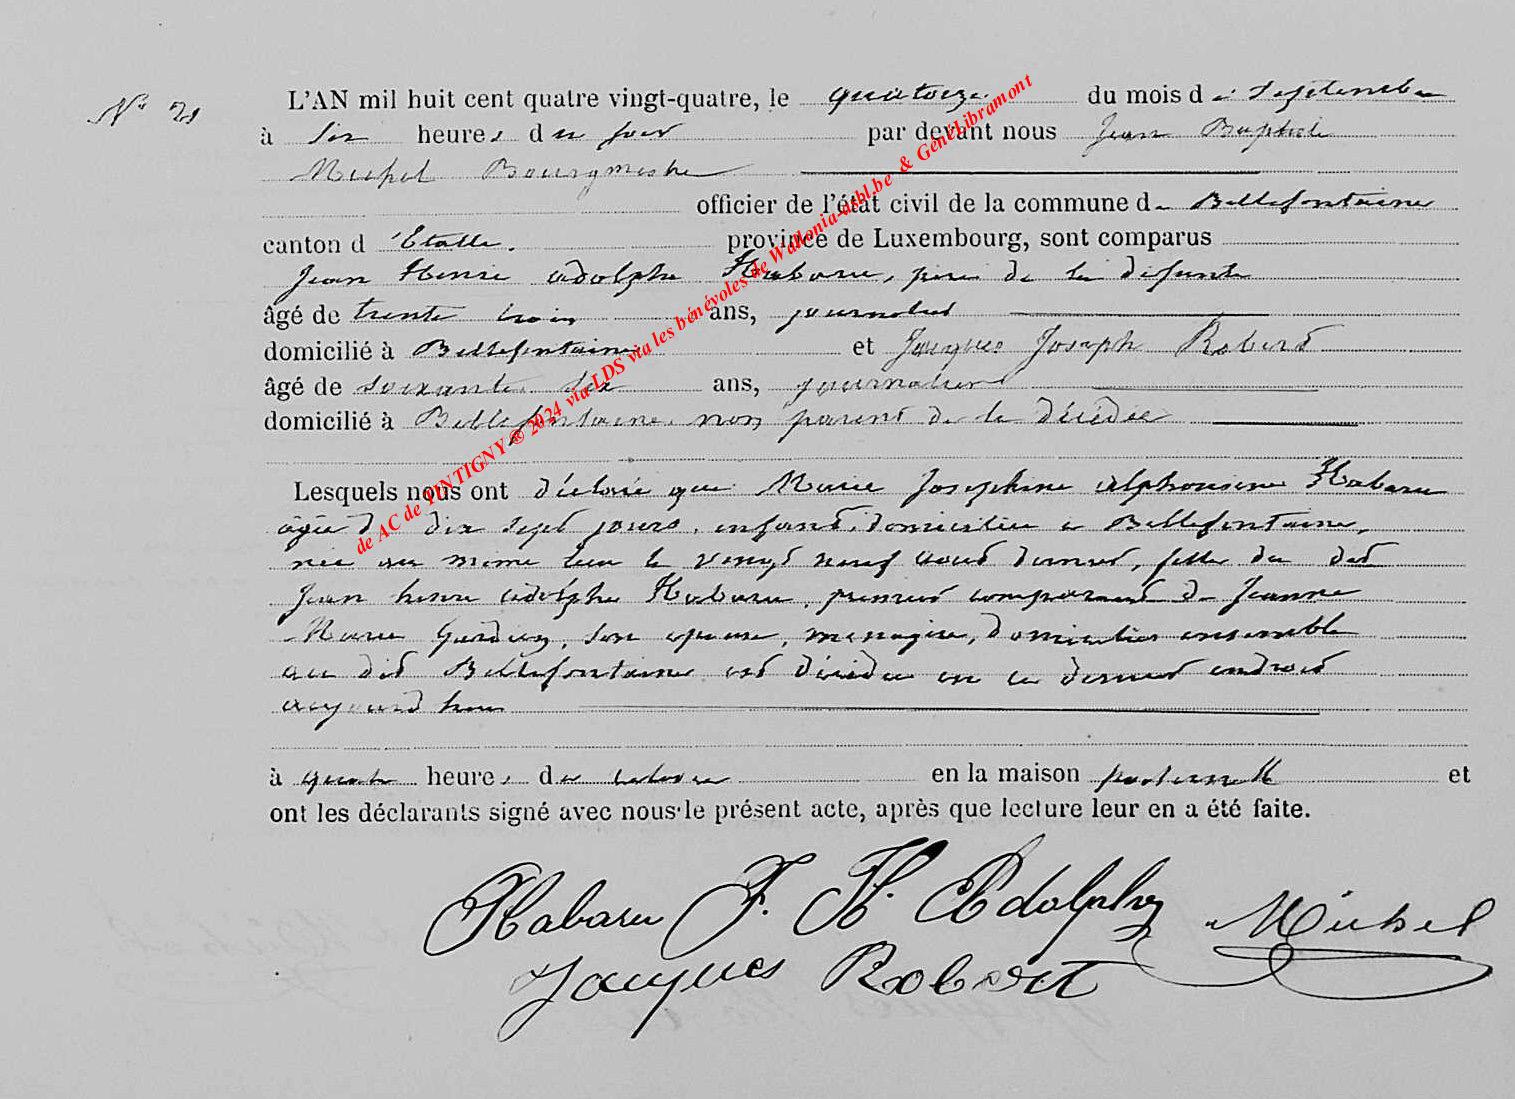 N° 21
L'AN mil huit cent quatre vingt-quatre, le quatorze du mois de Septembre
à six heures du soir par devant nous Jean Baptiste
Michel Bourgmestre
officier de l'état civil de la commune de Bellefontaine
canton d'Etalle. province de Luxembourg, sont comparus
Jean Henri Adolphe Habaru, père de la défunte
âgé de trente trois ans, journalier
domicilié à Bellefontaine et Jacques Joseph Robert
âgé de soixante six ans, journalier
domicilié à Bellefontaine non parent de la décédée
Lesquels nous ont déclaré que Marie Joséphine Alphonsine Habaru
âgée de dix sept jours, enfant, domiciliée à Bellefontaine,
née au même lieu le vingt neuf aout dernier, fille du dit
Jean henri Adolphe Habaru, premier comparant & de Jeanne
Marie son épouse, ménagère, domiciliés ensemble
au dit Bellefontaine est décédée en ce dernier endroit
aujourd'hui
à quatre heures du en la maison paternelle et
ont les déclarants signé avec nous le présent acte, après que lecture leur en a été faite.
Habaru J. H. Adolphe Michel
Jacques Robert
de AC de TINTIGNY ® 2024 via LDS via les bénévoles de Wallonia-asbl.be & GénéLibramont